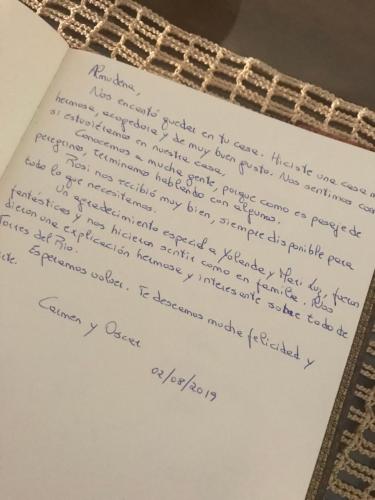 Almudena,
Nos encantó quedar en tu casa. Hiciste una casa
hermosa, acogedora y de muy buen gusto. Nos sentimos como
si estuviéramos en nuestra casa.
Conocemos a mucha gente, porque como es pasaje de
peregrinos, terminamos hablando con algunos.
Rosi nos recibió muy bien, siempre disponible para
todo lo que necesitamos.
Un agradecimiento especial a Yolanda y Mari Luz, fueron
fantásticas y nos hicieron sentir como en familia. Nos
dieron una explicación hermosa e interesante sobre todo de
Torres del Río.
Esperamos volver. Te deseamos mucha felicidad y
Carmen y Oscar
02/08/2019